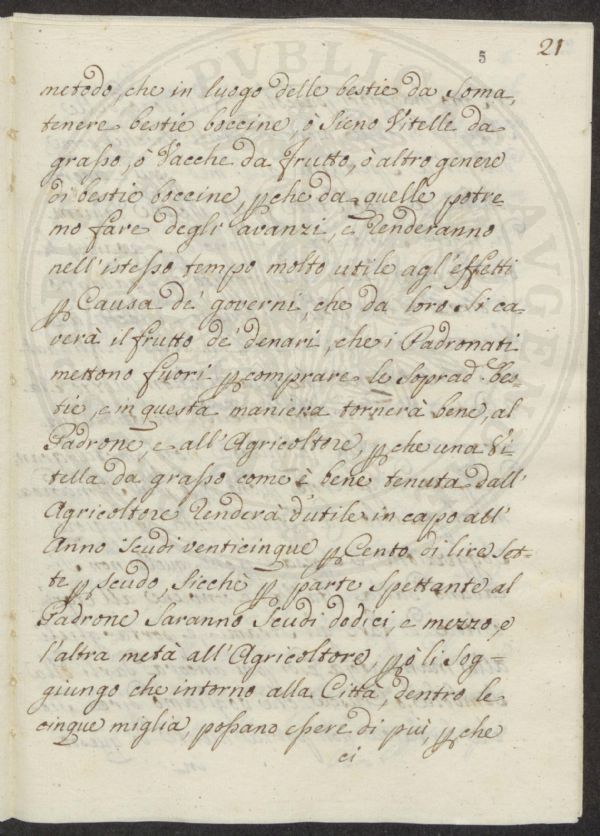 5 21
metodo, che in luogo delle bestie da Soma,
tenere bestie boccine, ò Sieno Vitelle da
grasso, ò Vacche da frutto, ò altro genere
di bestie boccine, pche da quelle potre
mo fare degli avanzi, e renderanno
nell'istesso tempo molto utile agl'effetti
p Causa de' governi, che da loro Si ca-
verà il frutto de' denari, che i Padronati
mettono fuori p comprare le Soprad. bes-
tie, e in questa maniera tornerà bene, al
Padrone, e all'Agricoltore, pche una Vi-
tella da grasso come è bene tenuta dall'
Agricoltore renderà d'utile in capo all'
Anno Scudi venticinque p Cento di lire Set-
te p scudo, Sicchè p parte Spettante al
Padrone Saranno Scudi dodici, e mezzo, e
l'altra metà all'Agricoltore, pò li Sog-
giungo che intorno alla Città, dentro le
cinque miglia, possano essere di più, pche
ci